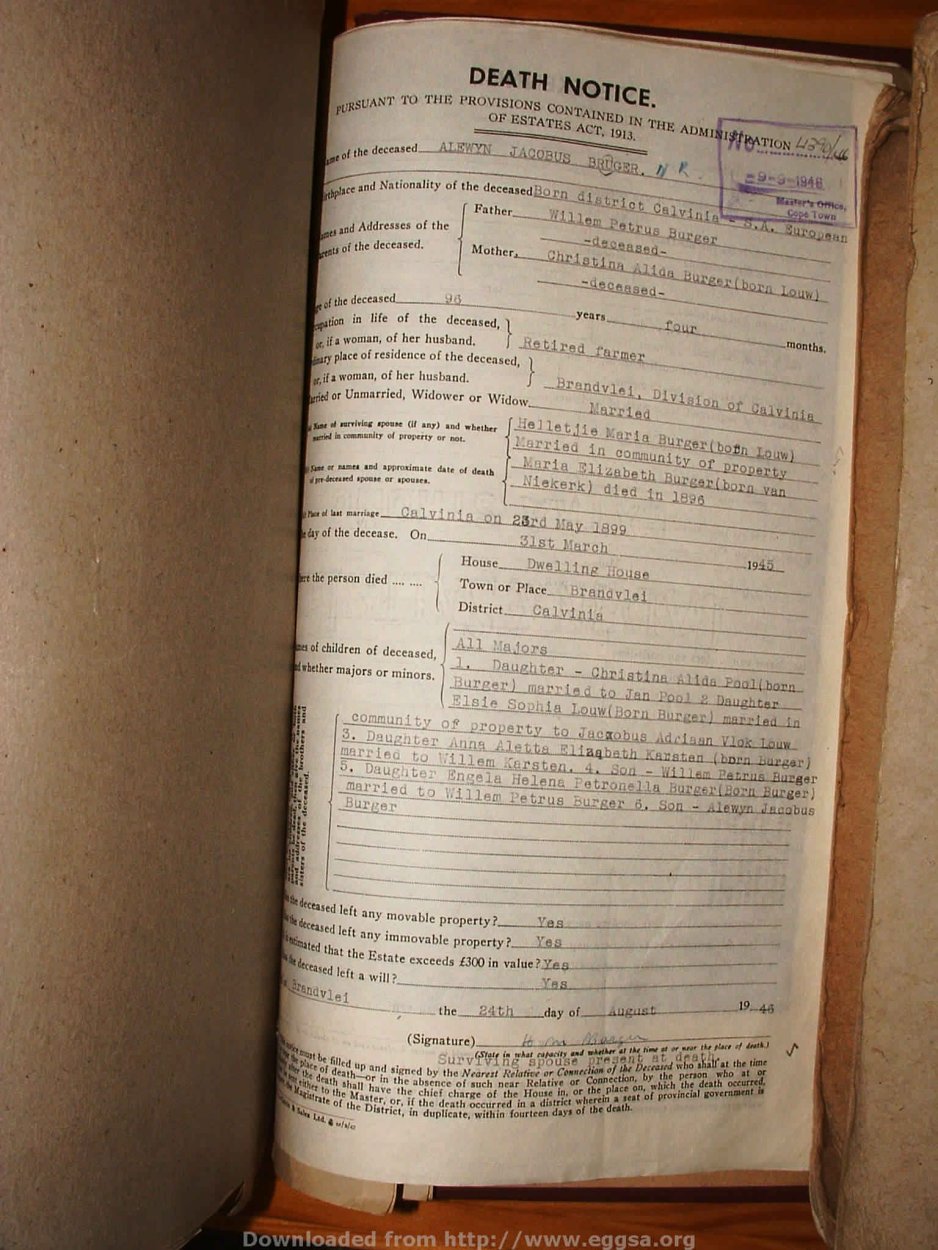 DEATH NOTICE.
PURSUANT TO THE PROVISIONS CONTAINED IN THE ADMINISTRATION
OF ESTATES ACT, 1913.
No 4290/46
-9-9-1946
Master's Office,
Cape Town
ame of the deceased ALEWYN JACOBUS BRUGER.
irthplace and Nationality of the deceased Born district Calvinia - S.A. European
ames and Addresses of the
arents of the deceased.
Father Willem Petrus Burger
-deceased-
Mother, Christina Alida Burger(born Louw)
-deceased-
ge of the deceased 96 years four months.
cupation in life of the deceased,
or, if a woman, of her husband.
Retired farmer
dinary place of residence of the deceased,
or, if a woman, of her husband.
Brandvlei, Division of Calvinia
arried or Unmarried, Widower or Widow Married
Name of surviving spouse (if any) and whether
married in community of property or not.
Helletjie Maria Burger(born Louw)
Married in community of property
Name or names and approximate date of death
of pre-deceased spouse or spouses.
Maria Elizabeth Burger(born van
Niekerk) died in 1896
Place of last marriage Calvinia on 23rd May 1899
e day of the decease. On 31st March 1945
ere the person died .... ....
House Dwelling House
Town or Place Brandvlei
District Calvinia
mes of children of deceased,
d whether majors or minors.
All Majors
1. Daughter - Christina Alida Pool(born
Burger) married to Jan Pool 2 Daughter
Elsie Sophia Louw(Born Burger) married in
community of property to Jacxobus Adriaan Vlok Louw
3. Daughter Anna Aletta Elizabeth Karsten (born Burger)
married to Willem Karsten. 4. Son - Willem Petrus Burger
5. Daughter Engela Helena Petronella Burger(Born Burger)
married to Willem Petrus Burger 6. Son - Alewyn Jacobus
Burger
and addresses of the brothers and
sisters of the deceased.
the deceased left any movable property? Yes
the deceased left any immovable property? Yes
estimated that the Estate exceeds £300 in value? Yes
the deceased left a will? Yes
Brandvlei
the 24th day of August 19 46
(Signature)
(State in what capacity and whether at the time at or near the place of death.)
Surviving spouse present at death.
notice must be filled up and signed by the Nearest Relative or Connection of the Deceased who shall at the time
the place of death—or in the absence of such near Relative or Connection, by the person who at or
after the death shall have the chief charge of the House in, or the place on, which the death occurred,
either to the Master, or, if the death occurred in a district wherein a seat of provincial government is
Magistrate of the District, in duplicate, within fourteen days of the death.
Downloaded from http://www.eggsa.org